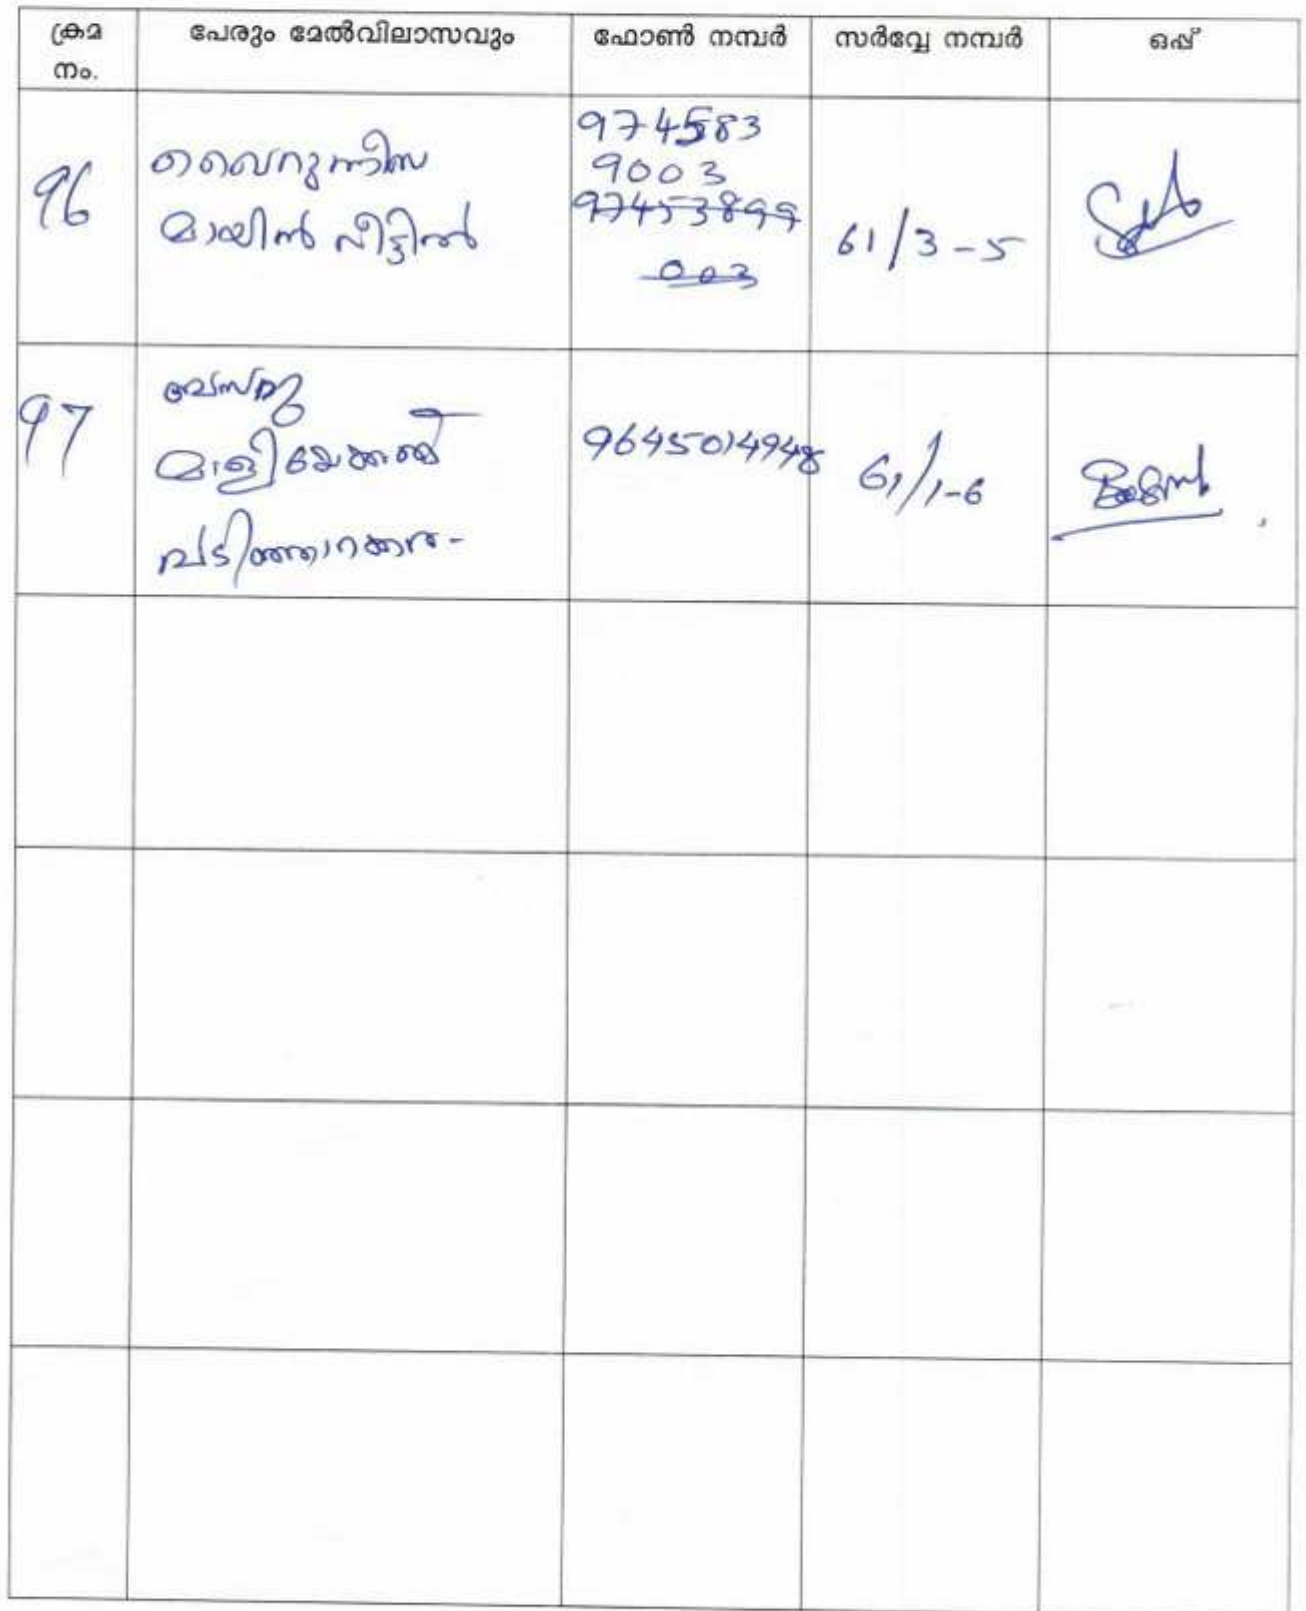 ക്രമ നം. പേരും മേൽവിലാസവും ഫോൺ നമ്പർ സർവ്വേ നമ്പർ ഒപ്പ്
96
ഖൈറുന്നീസ
മായിൻ വീട്ടിൽ
974583
9003
97453899
003
61/3-5
97
മാളിയേക്കൽ
പടിഞ്ഞാറക്കര-
9645014948
61/1-6